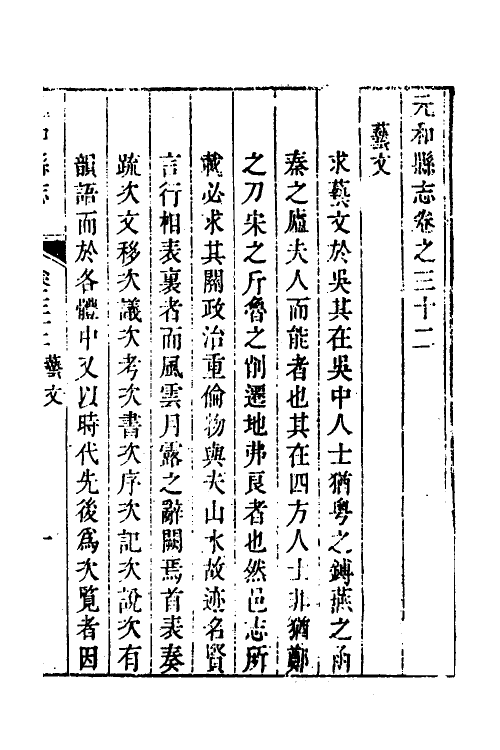 元和縣志卷之三十二
藝文
求藝文於吳其在吳中人士猶粵之鎛燕之函
秦之廬夫人而能者也其在四方人士非猶鄭
之刀宋之斤魯之削遷地弗良者也然邑志所
載必求其關政治重倫物與夫山水故迹名賢
言行相表裏者而風雲月露之辭闕焉首表奏
疏次文移次議次考次書次序次記次說次有
韻語而於各體中又以時代先後爲次覽者因
元和縣志 卷三十二 藝文 一